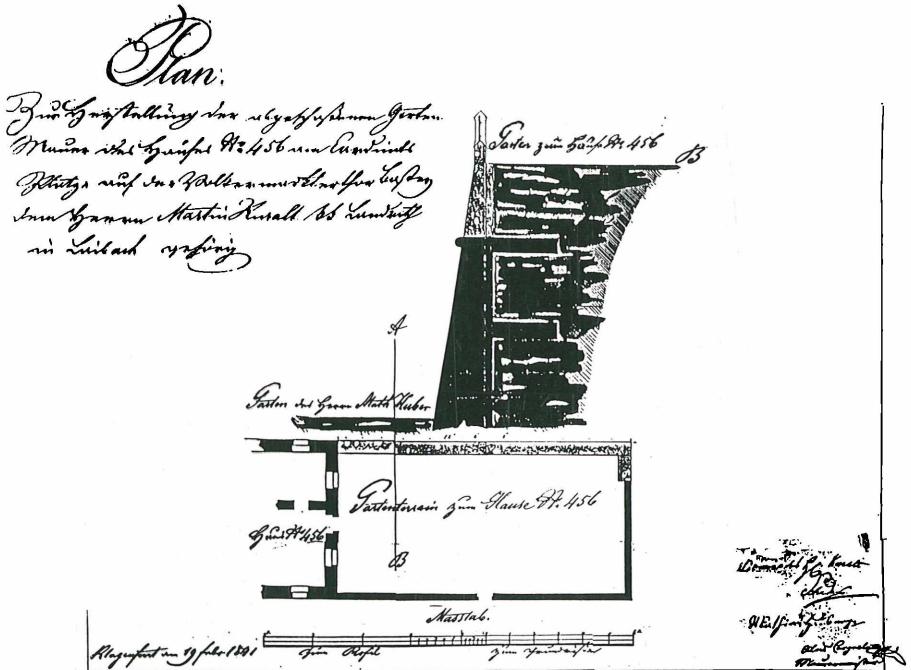 Plan.
Zur Herstellung der abgeschoßenen Garten
Mauer des Hauses No 456 am Cardinals
Platze auf der Volkermarkterthor Bastey
dem Herrn Martin Kuralt kk Landrath
in Laibach gehörig
Garten zum Hause No 456
B
A
Garten des Herrn Math Huber
Gartenterrain zum Hause No. 456
Haus No 456
B
Masstab.
Klagenfurt am 19 Febr
zum Profil
zum Grundrisse